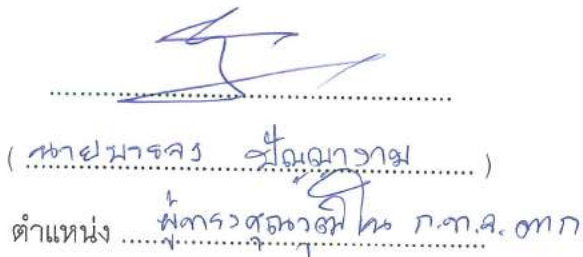 (นาย ปัญญางาม)
ตำแหน่ง ผู้ทรงคุณวุฒิใน ก.ท.จ. ตาก